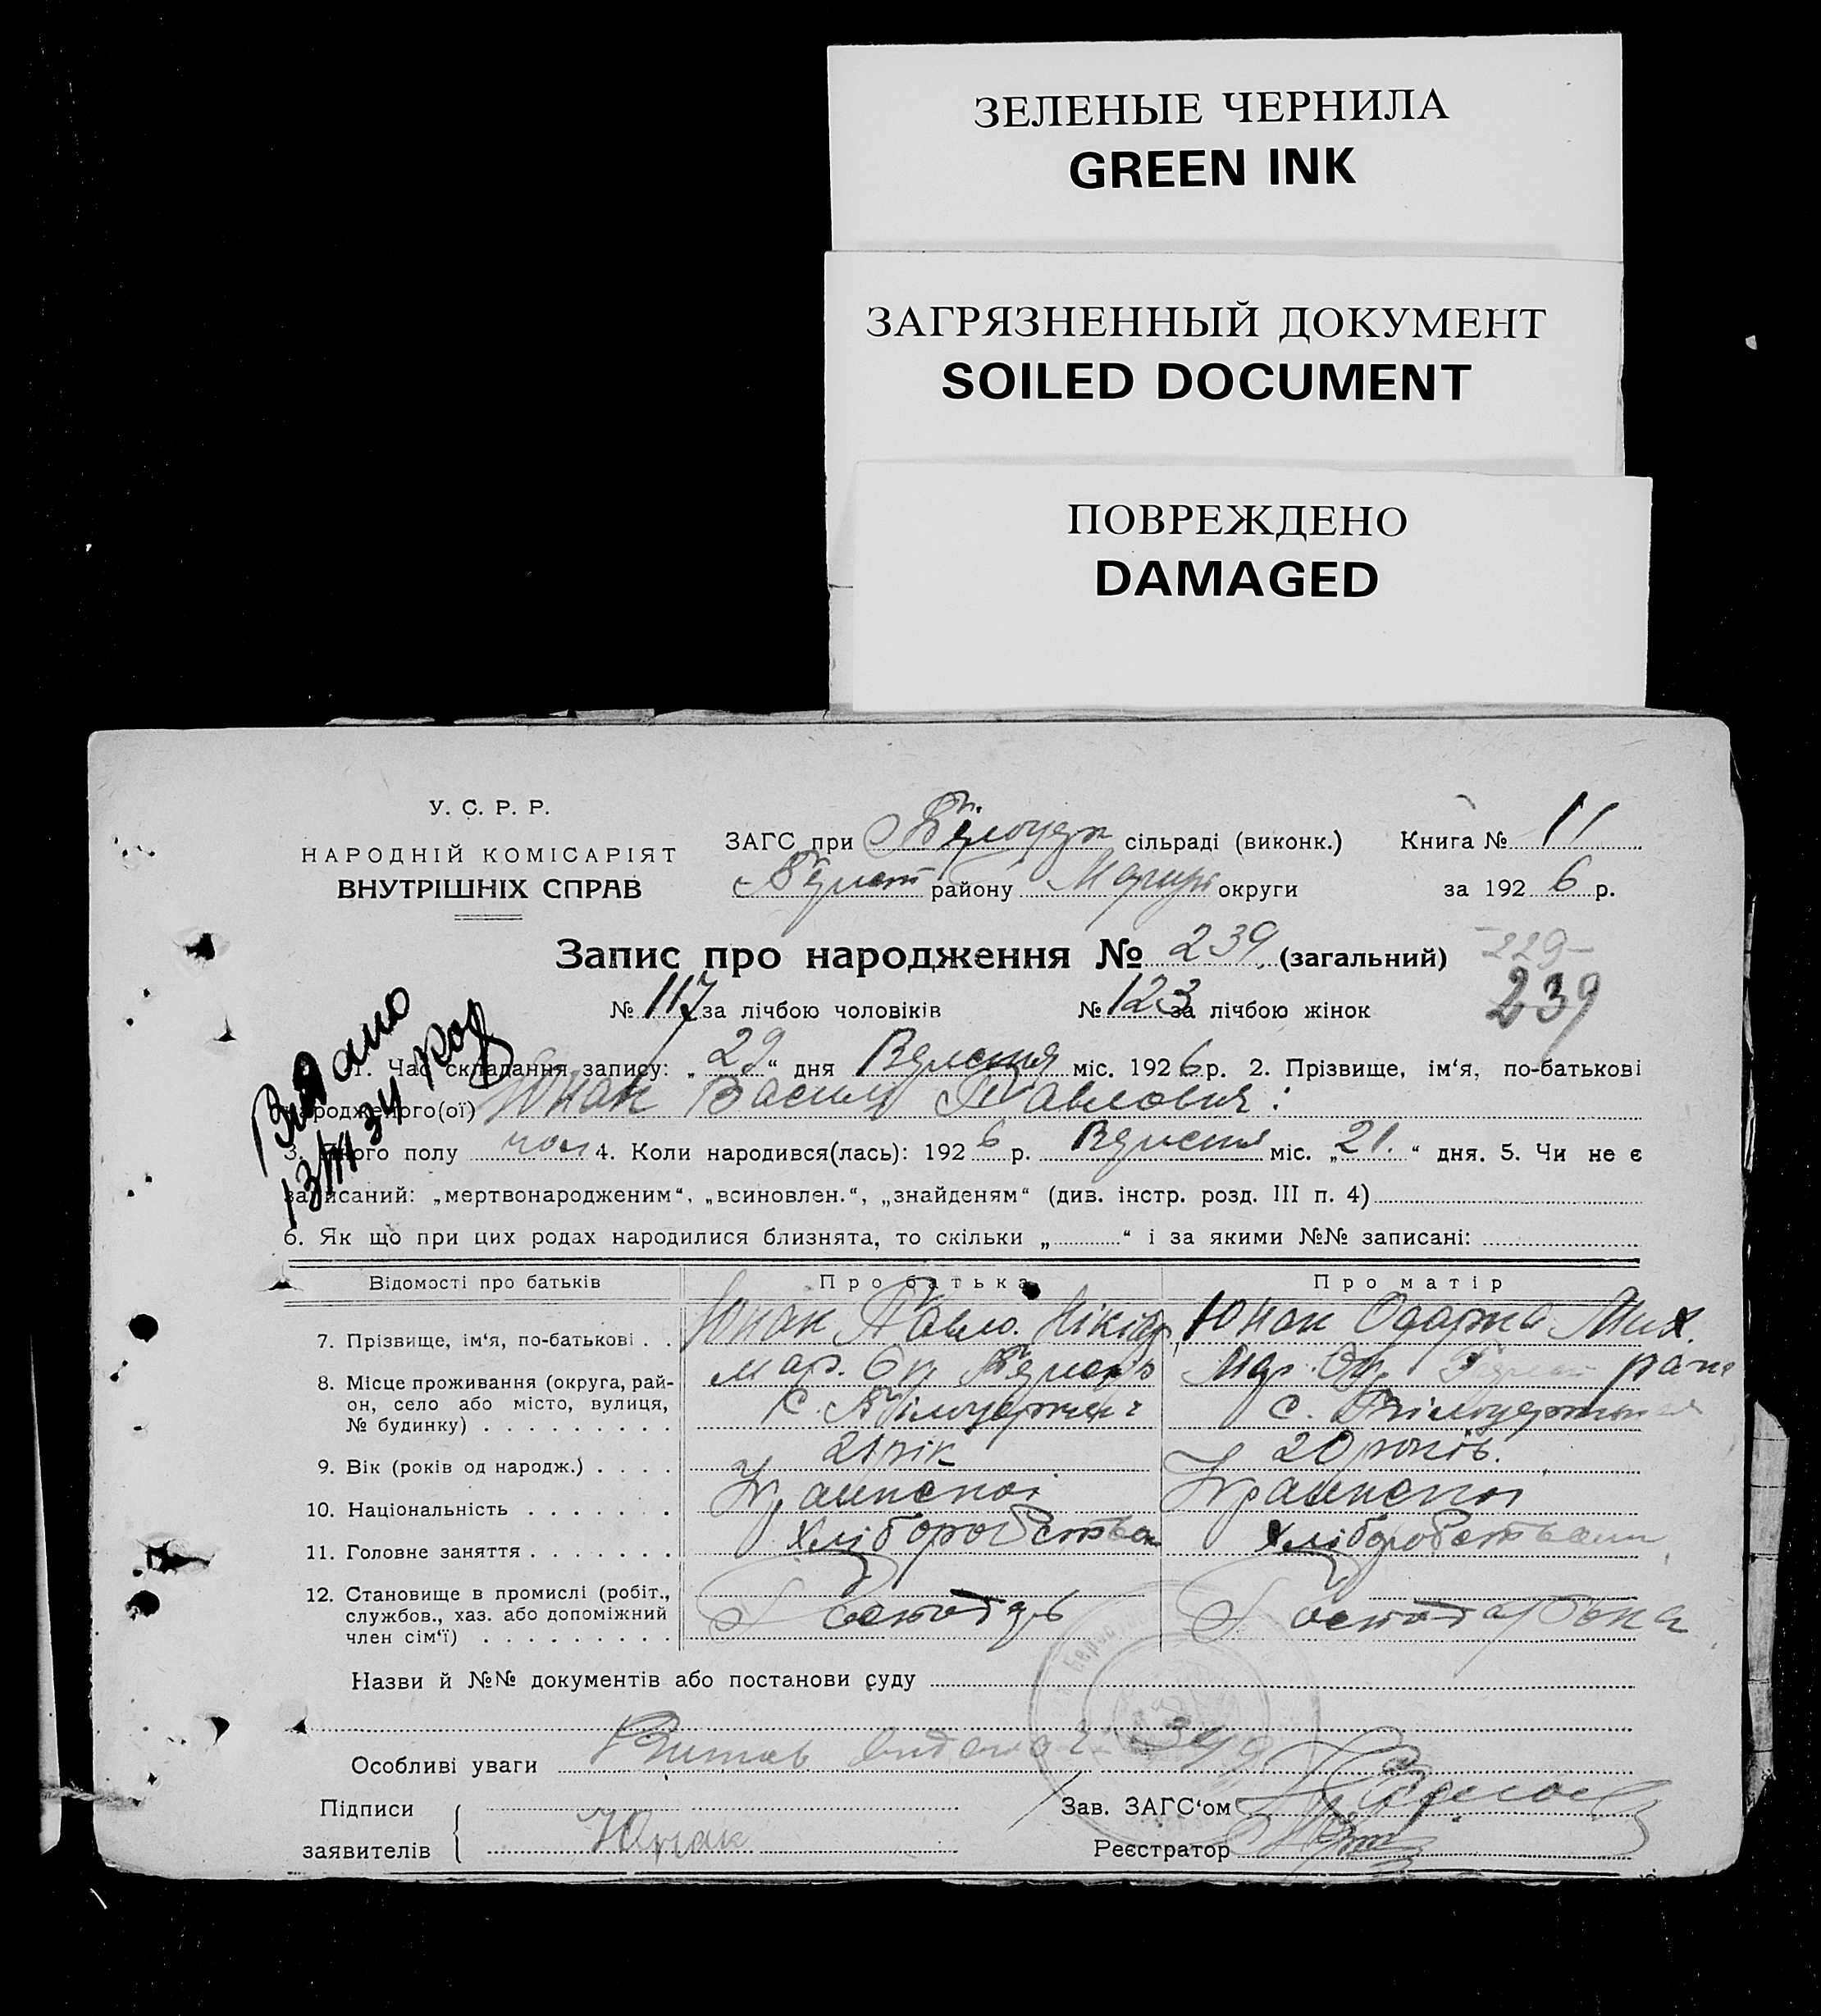 ЗЕЛЕНЫЕ ЧЕРНИЛА
GREEN INK
ЗАГРЯЗНЕННЫЙ ДОКУМЕНТ
SOILED DOCUMENT
ПОВРЕЖДЕНО
DAMAGED
У. С. Р. Р.
НАРОДНІЙ КОМІСАРІЯТ
ВНУТРІШНІХ СПРАВ
ЗАГС при сільраді (виконк.) Книга № 11
району округи за 192 6 р.
Запис про народження № 239 (загальний) -229-
№ 117 за лічбою чоловіків № 123 за лічбою жінок 239
1. Час складання запису: „ 29 “ дня Вересня міс. 192 6 р. 2. Прізвище, ім‘я, по-батькові
народженого(ої) Юнак Васил Павлович
3. Якого полу чол 4. Коли народився(лась): 192 6 р. Вересня міс. „ 21. “ дня. 5. Чи не є
записаний: „мертвонародженим“, „всиновлен.“, „знайденям“ (див. інстр. розд. III п. 4)
6. Як що при цих родах народилися близнята, то скільки „ “ і за якими №№ записані:
Відомості про батьків Про батька Про матір
7. Прізвище, ім‘я, по-батькові . . Юнак Павло. Юнак Одарка Мих.
8. Місце проживання (округа, рай-
он, село або місто, вулиця, с. с.
№ будинку)
9. Вік (років од народж.) . . . . 21 рік 20 років.
10. Національність Української Української
11. Головне заняття Хліборобство Хліборобством
12. Становище в промислі (робіт.,
службов., хаз. або допоміжний Господарь Господарька
член сім‘ї)
Назви й №№ документів або постанови суду
Особливі уваги
Підписи Зав. ЗАГС‘ом
заявителів Юнак Реєстратор
Видано